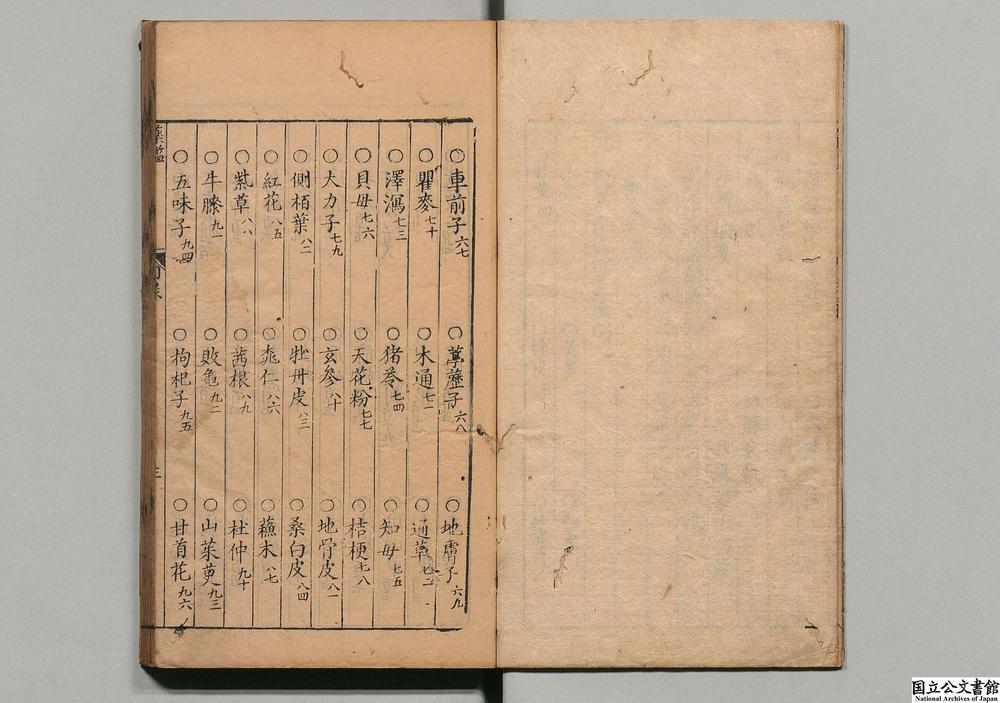 ○車前子六七　○葶藶子六八　○地膚子六九
○瞿麥七十　○木通七一　○通草七二
○澤瀉七三　○猪苓七四　○知母七五
○貝母七六　○天花粉七七　○桔梗七八
○大力子七九　○玄參八十　○地骨皮八一
○側栢葉八二　○牡丹皮八三　○桑白皮八四
○紅花八五　○桃仁八六　○蘓木八七
○紫草八八　○茜根八九　○杜仲九十
○牛膝九一　○敗龜九二　○山茱萸九三
○五味子九四　○拘杞子九五　○甘首花九六
目录
三
国立公文書館
National Archives of Japan